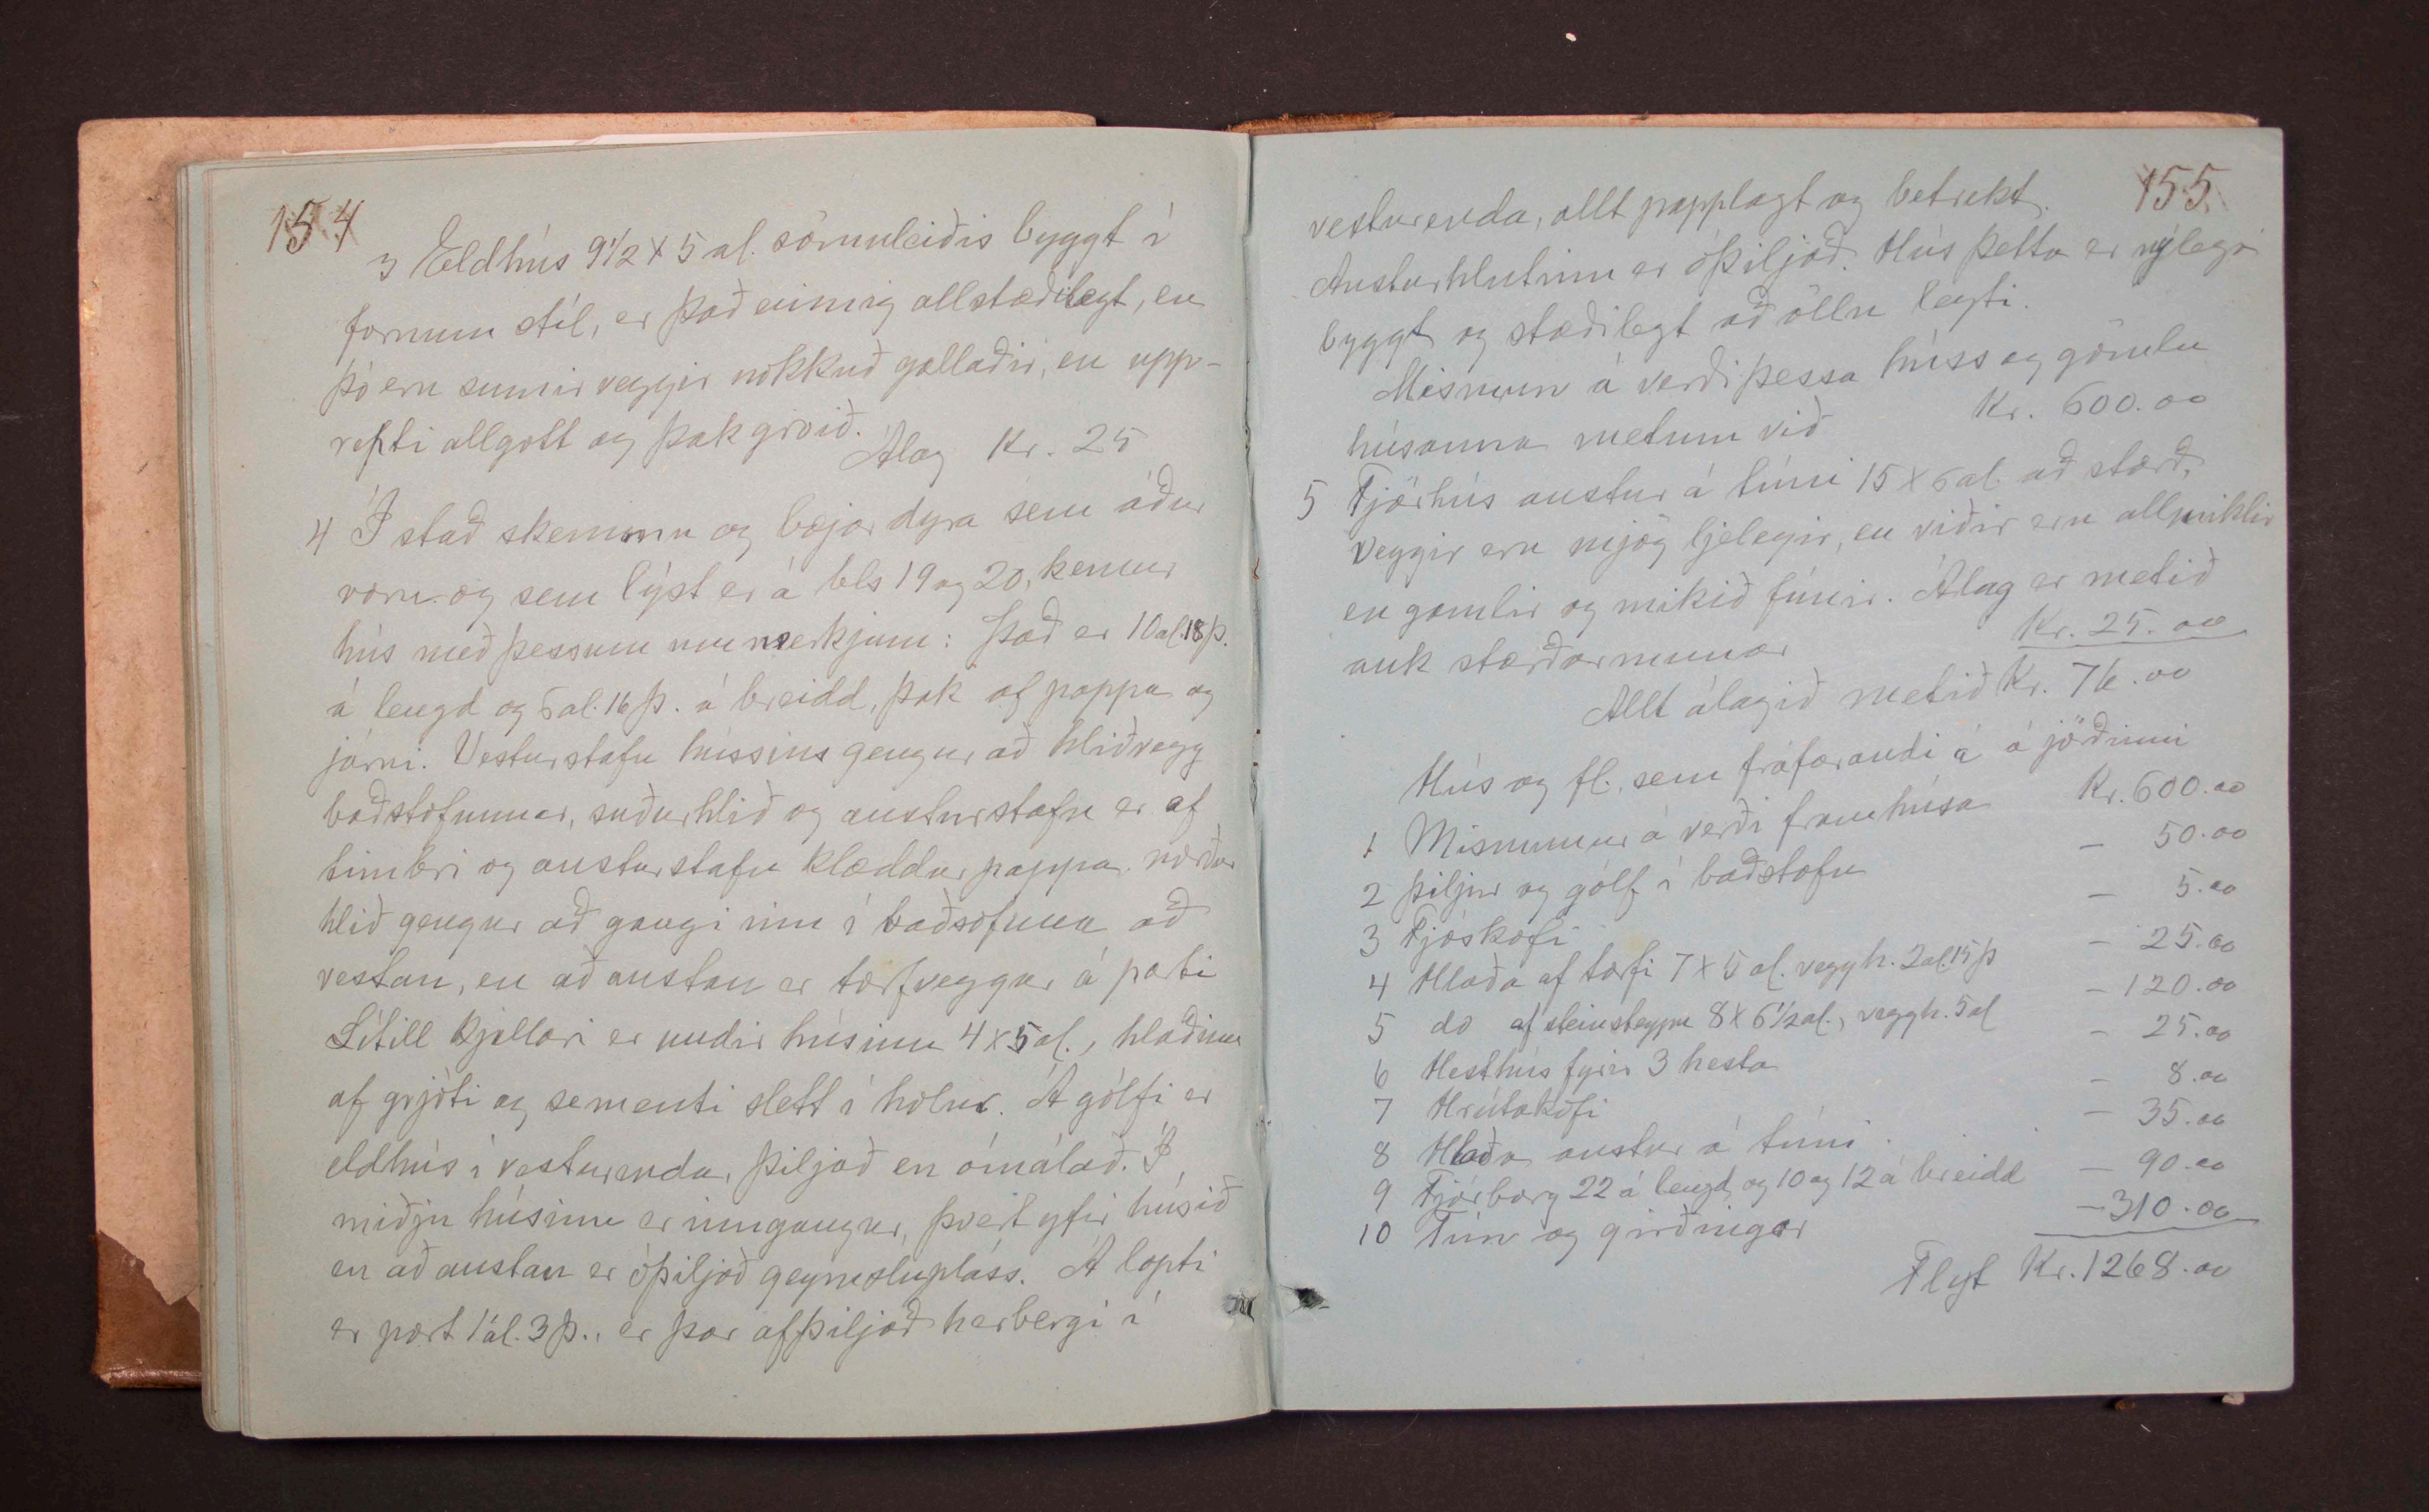 154
3 Eldhús 9 1/2 x 5 al. sömuleiðis byggt í
fornum stíl, er það einnig allstæðilegt, en
þó eru sumir veggir nokkuð gallaðir, en upp-
repti allgott og þak gróið.
Álag Kr. 25
4 Í stað skemmu og bæjardyra sem áður
voru og sem lýst er á bls 19 og 20, kemur
hús með þessum ummerkjum: Það er 10 al. 18 þ.
á lengd og 6 al. 16 þ. á breidd, þak af pappa og
járni. Vesturstafn hússins gengur að hliðvegg
baðstofunnar, suðurhlið og austurstafn er af
timbri og austurstafn klæddur pappa. norður
hlið gengur að gangi inn í baðsofuna að
vestan, en að austan er torfveggur á parti
Lítill kjallari er undir húsinu 4 x 5 al., hlaðinn
af grjóti og sementi slett í holur. Á gólfi er
eldhús í vesturenda, þiljað en ómálað. Í
miðju húsinu er inngangur, þvert yfir húsið
en að austan er óþiljað geymslupláss. Á lopti
er port 1 al. 3 þ., er þar afþiljað herbergi í
155
vesturenda, allt papplagt og betrekt.
Austurhlutinn er óþiljað. Hús þetta er nýlega
byggt og stæðilegt að öllu leyti.
Mismun á verði þessa húss og gömlu
húsanna metum við Kr. 600.00
5 Fjárhús austur á túni 15 x 6 al. að stærð,
veggir eru mjög ljelegir, en viðir eru allmiklir
en gamlir og mikið fúnir. Álag er metið
auk stærðarmunar Kr. 25.00
Allt álagið metið Kr. 76.00
Hús og fl. sem fráfarandi á á jörðinni
1 Mismunur á verði framhúsa Kr. 600.00
2 þiljur og gólf í baðstofu — 50.00
3 Fjóskofi — 5.00
4 Hlaða af torfi 7 x 5 al. veggh. 2 al. 15 þ — 25.00
5 do af steinsteypu 8 x 6 1/2 al., veggh. 5 al — 120.00
6 Hesthús fyrir 3 hesta — 25.00
7 Hrútakofi — 8.00
8 Hlaða austur á túni — 35.00
9 Fjárborg 22 á lengd og 10 og 12 á breidd — 90.00
10 Tún og girðingar — 310.00
Flyt Kr. 1268.00